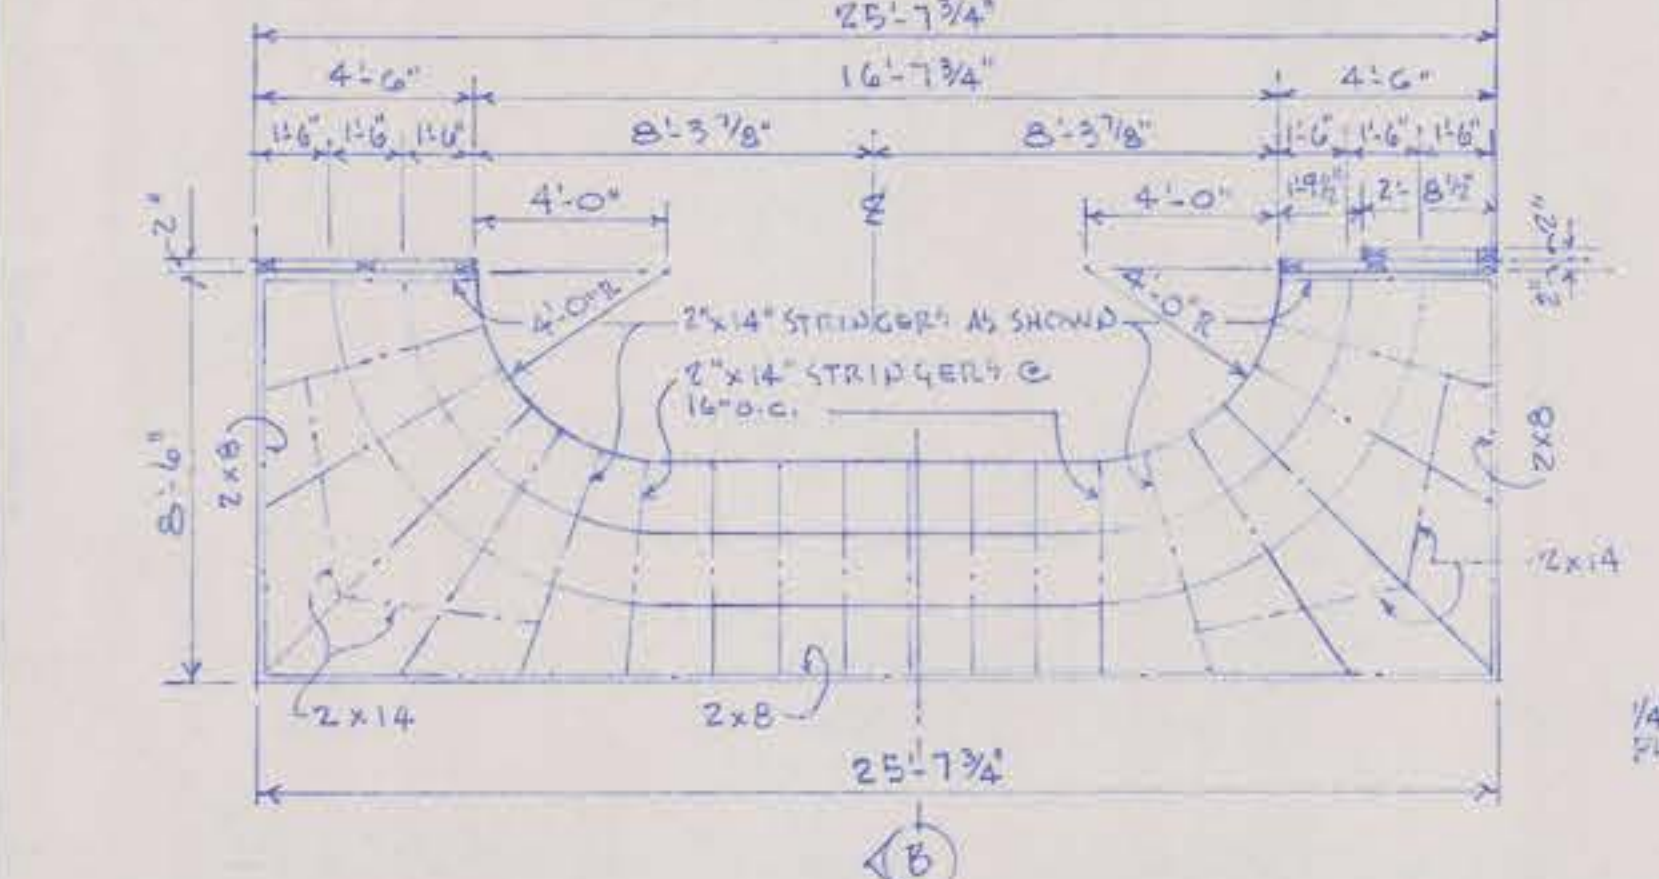 25'-7 3/4"
4'-6" 16'-7 3/4" 4'-6"
1'-6" 1'-6" 1'-6" 8'-3 7/8" 8'-3 7/8" 1'-6" 1'-6" 1'-6"
4'-0" 4'-0" 1'-9 1/2" 2'-8 1/2"
2" 2" 2"
4'-0"R 4'-0"R
2"x14" STRINGERS AS SHOWN
2"x14" STRINGERS @
16" O.C.
8'-6" 2x8 2x8
2x14
2x14 2x8
25'-7 3/4"
B
1/4